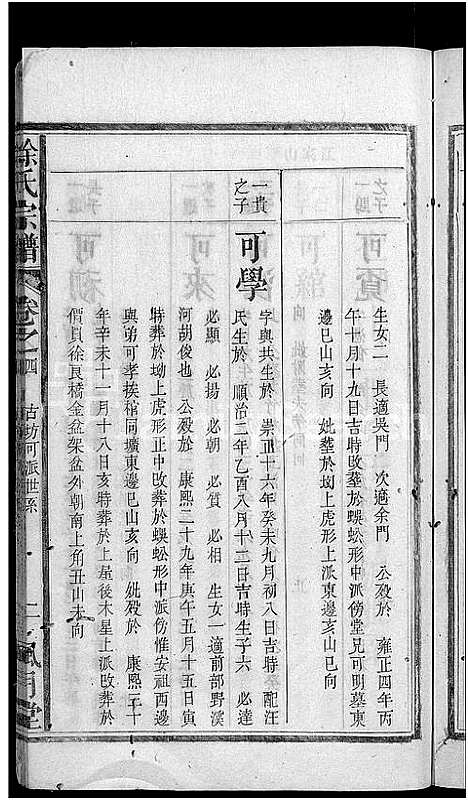 生女二 長適吳門 次適余門 公殁於 雍正四年丙
午十月十九日吉時改塟於蜈蚣形中派傍堂兄可明墓東
邊巳山亥向 妣塟於坳上虎形上派東邊亥山巳向
一貫之子 可學
字與共生於 崇正十六年癸未九月初八日吉時 配汪
氏生於 順治二年乙酉八月十二日吉時生子六 必達
必顯 必揚 必朝 必質 必相 生女一適前部野溪
河胡俊也 公殁於 康熙二十九年庚午五月十五日寅
時葬於坳上虎形正中改葬於蜈蚣形中派傍惟安祖西邊
與弟可孝挨棺同壙東邊巳山亥向 妣殁於 康熙三十
年辛未十一月十八日亥時葬於上屋後木星上派改葬於
價貝徐艮橋金盆架盆外朝南上角丑山未向
徐氏宗譜 卷之四 古坊河派世系